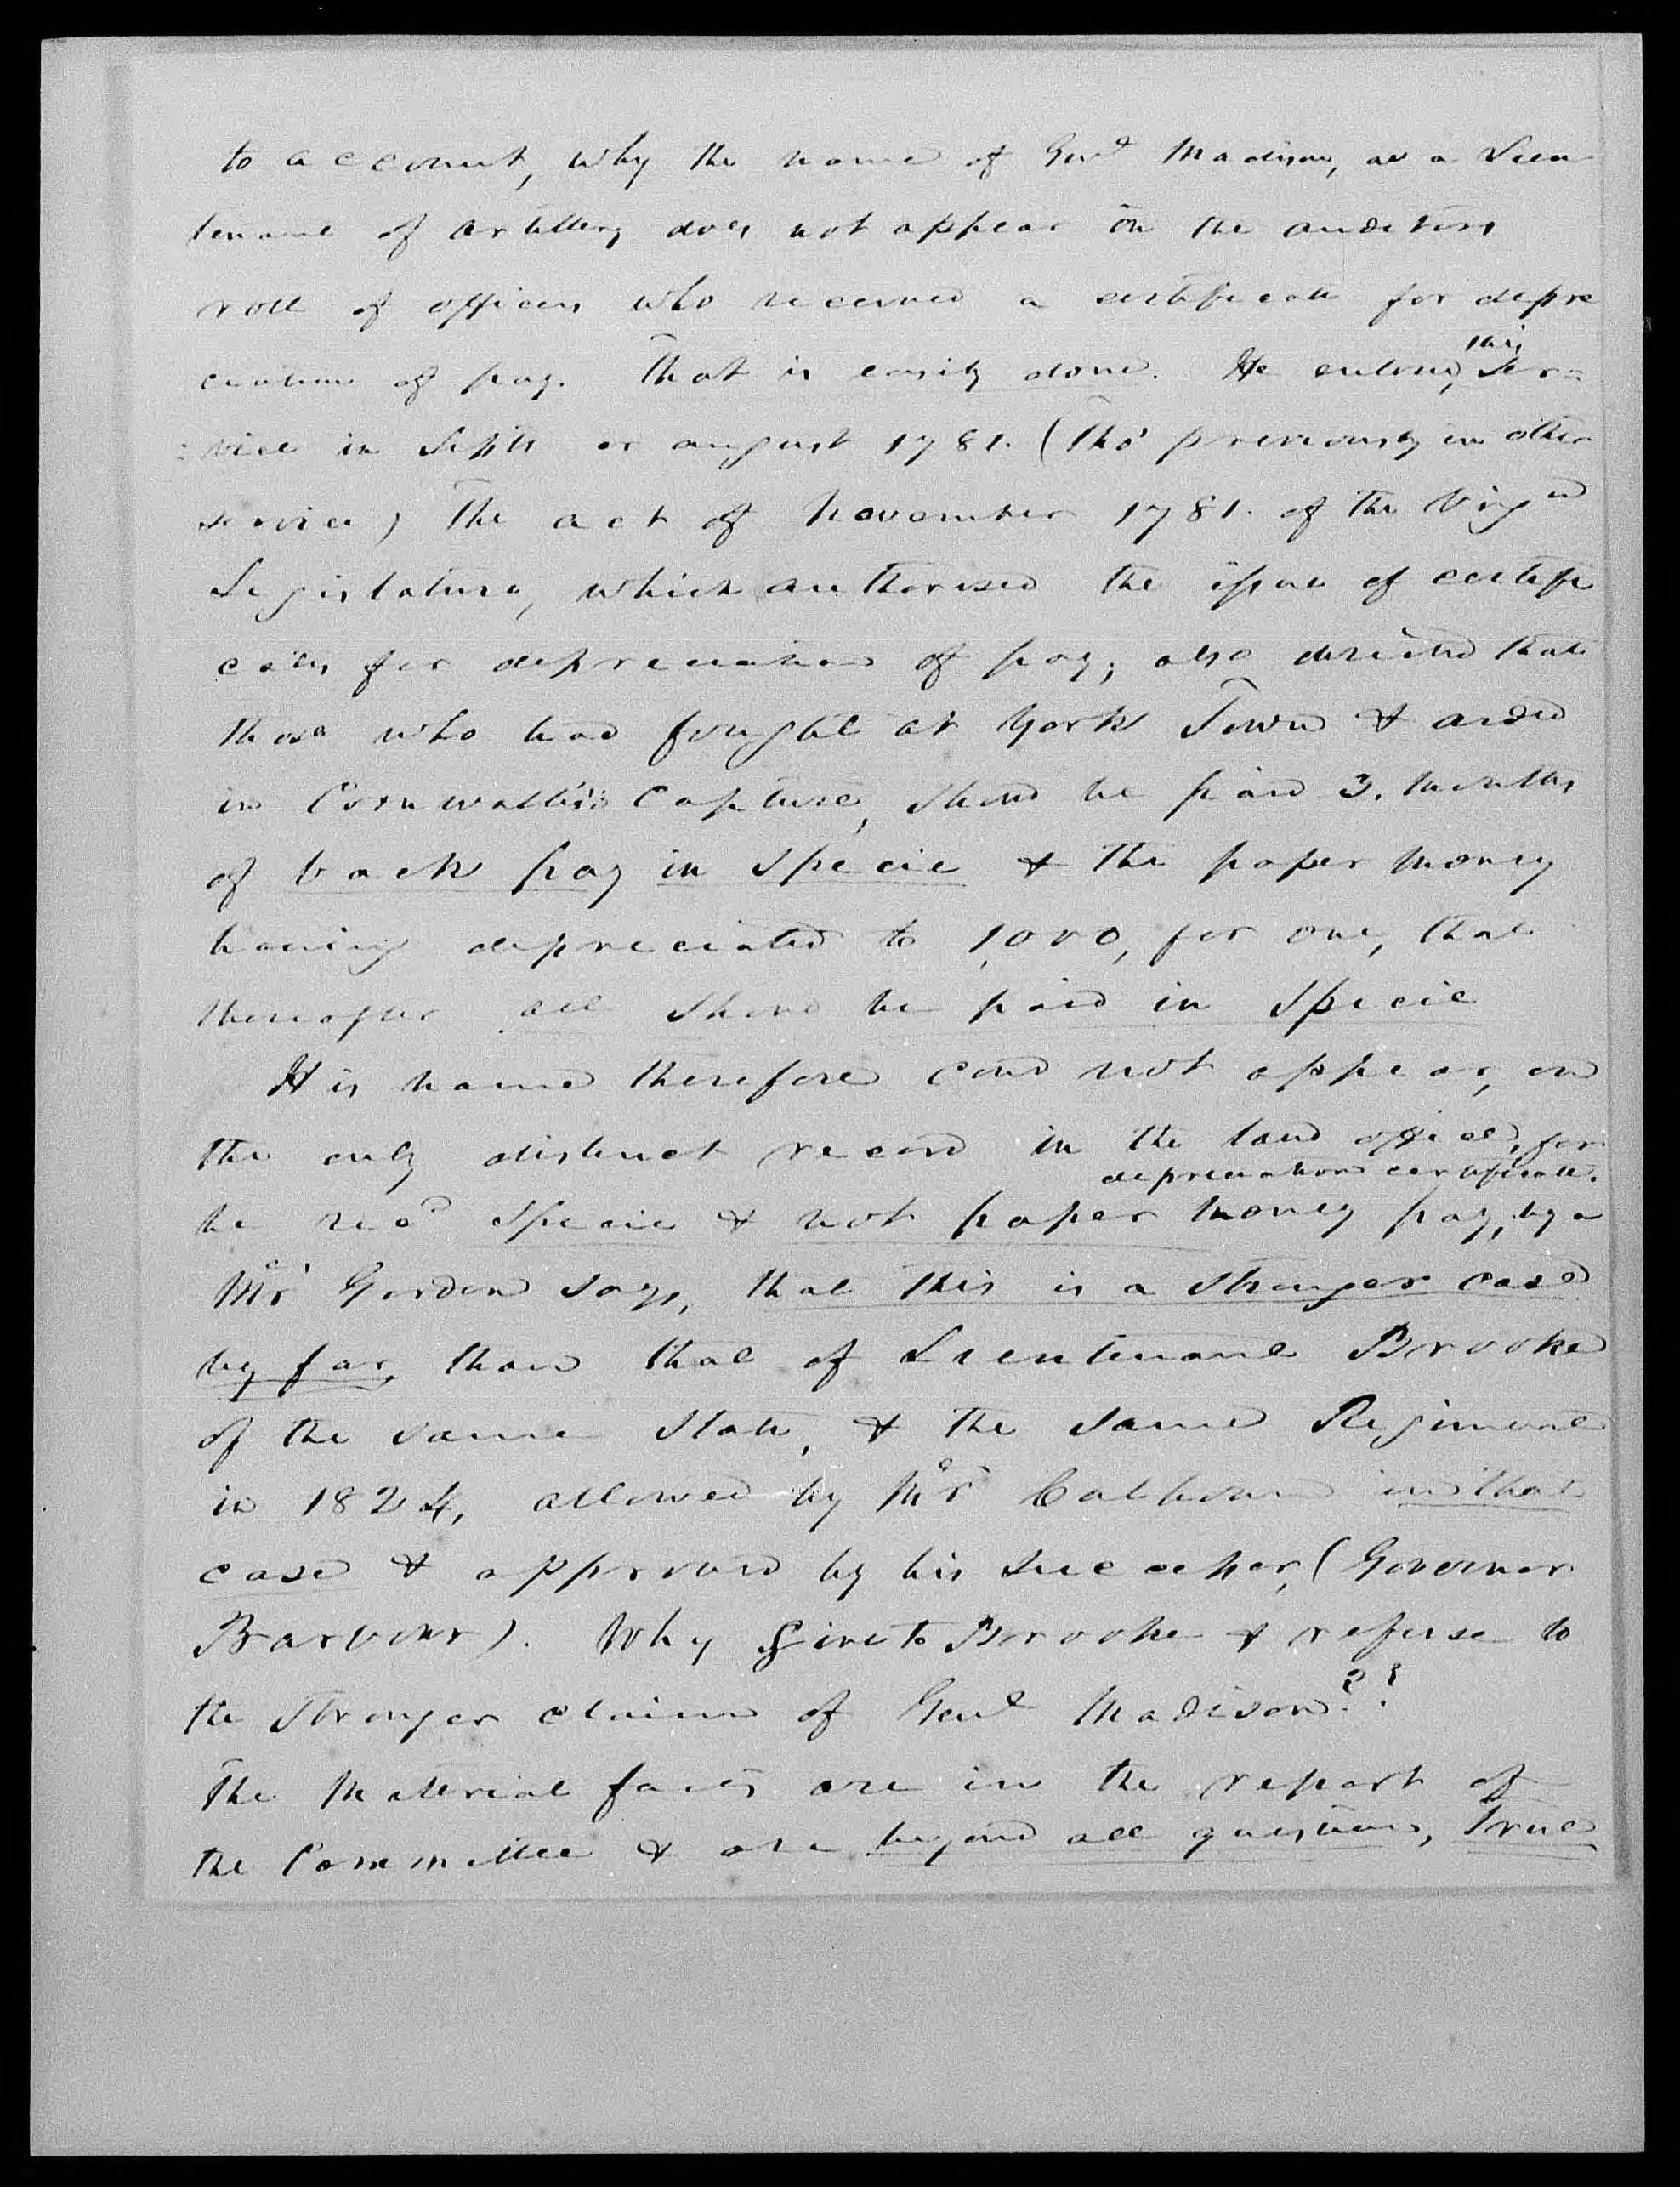 to account, why the name of Genl Madison, as a Lieu
tenant of artillery does not appear on the auditors
roll of officers who received a certificate for depre
ciation of pay. That is easily done. He entered, this Ser=
=vice in Septr or august 1781. (Tho' previously in other
service) The act of November 1781. of the Virga
Legislature, which authorised the issue of certifi
cates for depreciation of pay; also directed that
those who had fought at York Town & aided
in Cornwallis's Capture, shoud be paid 3. months
of back pay in Specie & the paper money
having depreciated to 1,000, for one, that
thereafter all shoud be paid in Specie
His name therefore coud not appear, on
the only distinct record in the land office, for
depreciation certificate.
he recd Specie & not paper money pay,
Mr Gordon says, that this is a stronger case
by far, than that of Lieutenant Brooke
of the same State, & the same Regiment
in 1824, allowed by Mr Calhoun in that
case & approved by his successor, (Governor
Barbour). Why give to Brooke & refuse to
the stronger claim of Genl Madison??
The Material facts are in the report of
the Committee & are beyond all question, True